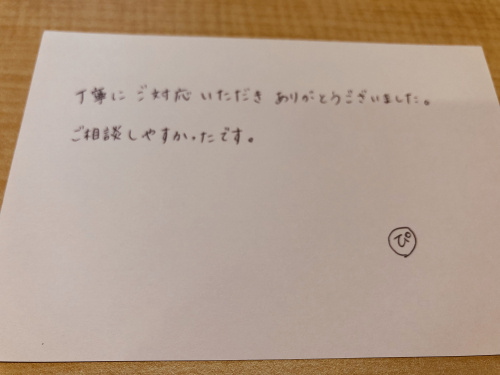 丁寧にご対応いただきありがとうございました。
ご相談しやすかったです。
ぴ